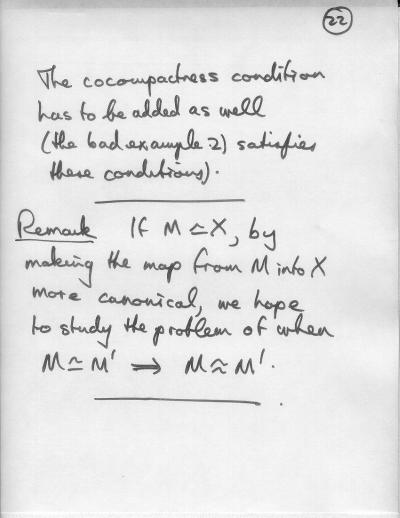 22
The cocompactness condition
has to be added as well
(the bad example 2) satisfies
these conditions).
Remark If M ≃ X, by
making the map from M into X
more canonical, we hope
to study the problem of when
M ≃ M' ⟹ M ≈ M'.